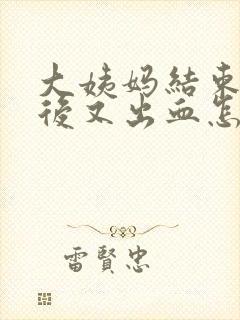 大姨妈結束
後又出血怎
雷賢忠